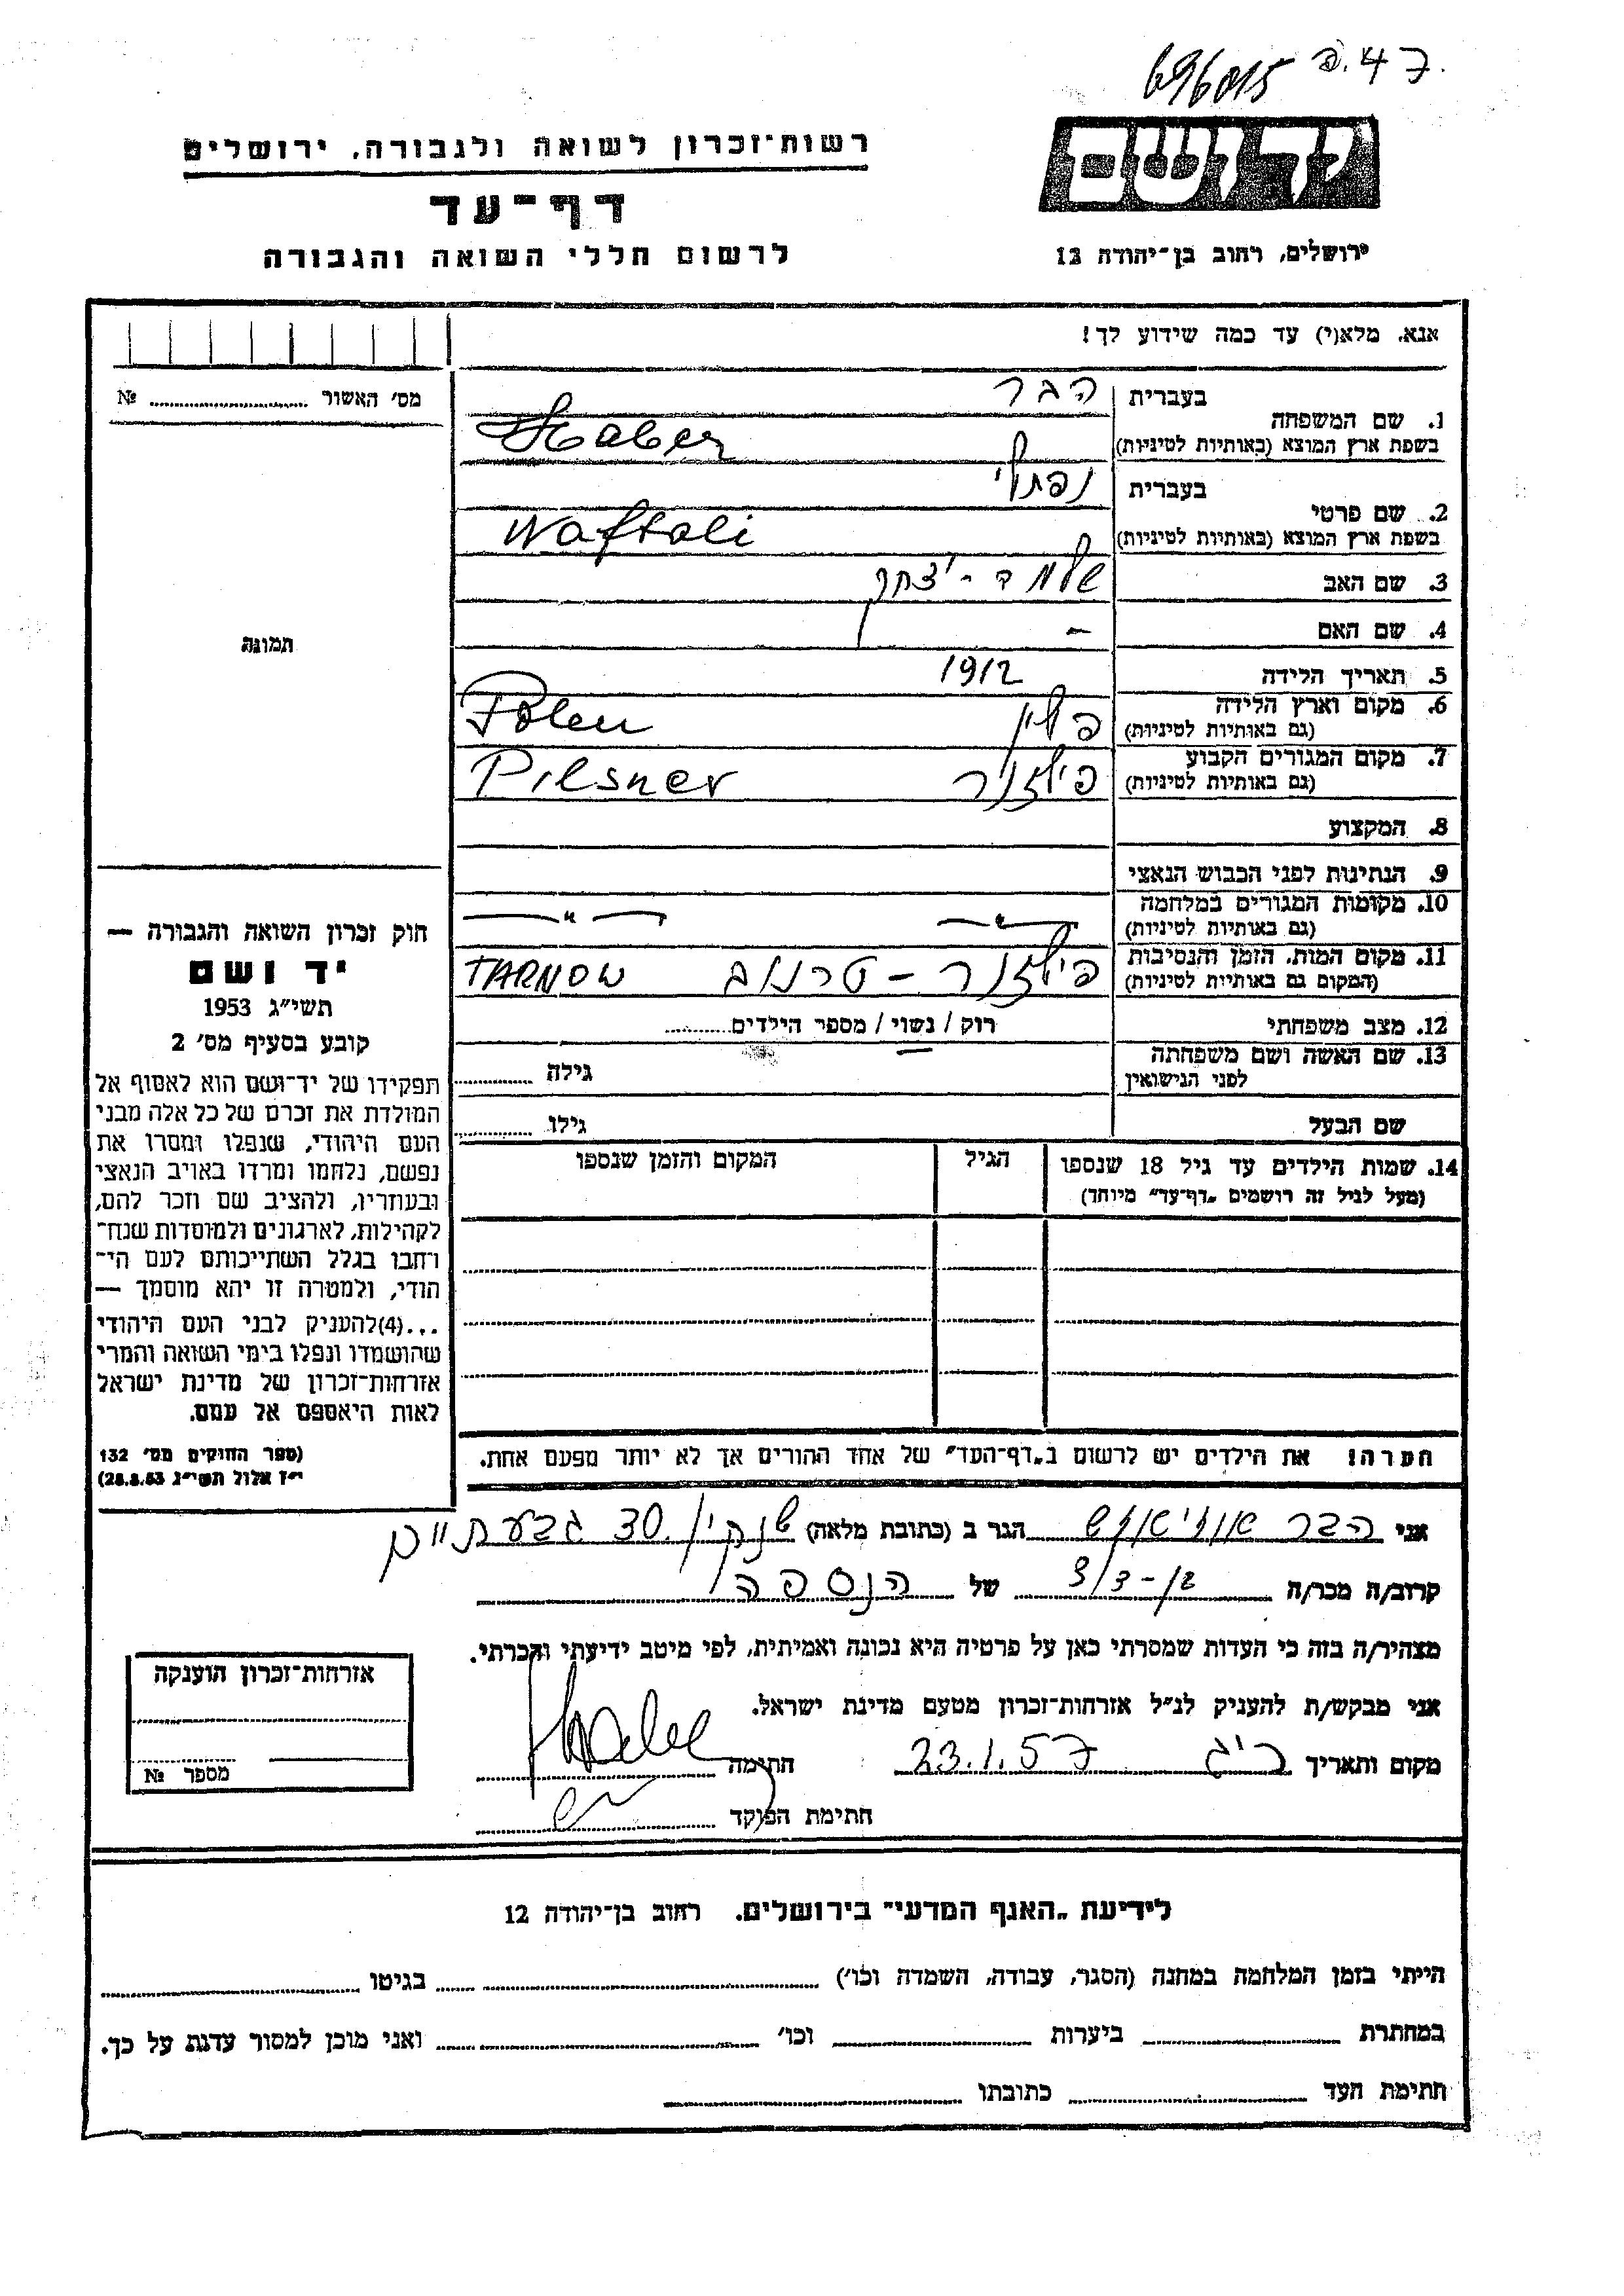 696015 פ. 47.
ידושם
ירושלים, רחוב בן־יהודה 12
רשות־זכרון לשואה ולגבורה, ירושלים
דף־עד
לרשום חללי השואה והגבורה
אנא, מלא(י) עד כמה שידוע לך!
מס' האשור № 
1. שם המשפחה בעברית הבר
בשפת ארץ המוצא (באותיות לטיניות) Haber
2. שם פרטי בעברית נפתלי
בשפת ארץ המוצא (באותיות לטיניות) Naftali
3. שם האב שלמה - יצחק
4. שם האם –
5. תאריך הלידה 1912
6. מקום וארץ הלידה פולין Polen
(גם באותיות לטיניות)
7. מקום המגורים הקבוע פילזנר Pilsner
(גם באותיות לטיניות)
8. המקצוע
9. הנתינות לפני הכבוש הנאצי
10. מקומות המגורים במלחמה — " — — " —
(גם באותיות לטיניות)
11. מקום המות, הזמן והנסיבות פילזנר – טרנוב TARNOW
(המקום גם באותיות לטיניות)
12. מצב משפחתי רוק / נשוי / מספר הילדים
13. שם האשה ושם משפחתה לפני הנישואין גילה
שם הבעל גילו
14. שמות הילדים עד גיל 18 שנספו הגיל המקום והזמן שנספו
(מעל לגיל זה רושמים „דף־עד" מיוחד)
תמונה
חוק זכרון השואה והגבורה —
יד ושם
תשי״ג 1953
קובע בסעיף מס' 2
תפקידו של יד־ושם הוא לאסוף אל
המולדת את זכרם של כל אלה מבני
העם היהודי, שנפלו ומסרו את
נפשם, נלחמו ומרדו באויב הנאצי
ובעוזריו, ולהציב שם וזכר להם,
לקהילות, לארגונים ולמוסדות שנח־
רחבו בגלל השתייכותם לעם הי־
הודי, ולמטרה זו יהא מוסמך —
...(4)להעניק לבני העם היהודי
שהושמדו ונפלו בימי השואה והמרי
אזרחות־זכרון של מדינת ישראל
לאות היאספם אל עמם.
(ספר החוקים מס' 132
י״ז אלול תשי״ג 28.8.53)
הערה! את הילדים יש לרשום ב„דף־העד" של אחד ההורים אך לא יותר מפעם אחת.
אני הבר הגר ב (כתובת מלאה) שנקין 30 גבעתיים
קרוב/ה מכר/ה של הנספה
מצהיר/ה בזה כי העדות שמסרתי כאן על פרטיה היא נכונה ואמיתית, לפי מיטב ידיעתי והכרתי.
אני מבקש/ת להעניק לנ״ל אזרחות־זכרון מטעם מדינת ישראל.
מקום ותאריך 23.1.57 חתימה Haber
חתימת הפוקד
אזרחות־זכרון הוענקה
מספר №
לידיעת „האגף המדעי" בירושלים. רחוב בן־יהודה 12
הייתי בזמן המלחמה במחנה (הסגר, עבודה, השמדה וכו') בגיטו
במחתרת ביערות וכו' ואני מוכן למסור עדות על כך.
חתימת העד כתובתו